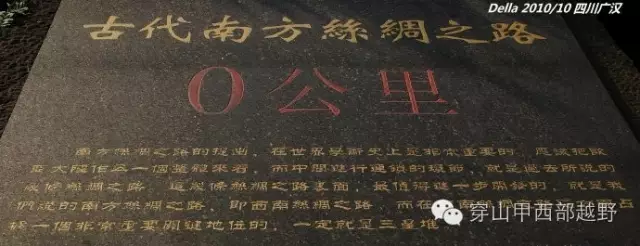 Della 2010/10 四川广汉
古代南方絲綢之路
0公里
南方絲綢之路的提出，在世界學術史上是非常重要的，應該把歐
亞大陸作為一個整體來看，而中間進行連鎖的環節，就是過去所說的
幾條絲綢之路，這幾條絲綢之路裏面，最值得進一步開發的，就是我
們說的南方絲綢之路，即西南絲綢之路，而在
占
據一個非常重要關鍵地位的，一定就是三星堆
穿山甲西部越野